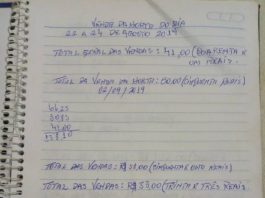 VENDA DA HORTA DO DIA
22 A 24 DE AGOSTO 2019
TOTAL GERAL DAS VENDAS: 41,00 (QUARENTA E
UM REAIS.
TOTAL DA VENDA DA HORTA: 50.00 (CINQUENTA REAIS)
02/09/2019
41.00
TOTAL DAS VENDAS: R$ 58,00 (CINQUENTA E OITO REAIS)
TOTAL DAS VENDAS: R$ 33,00 (TRINTA E TRÊS REAIS